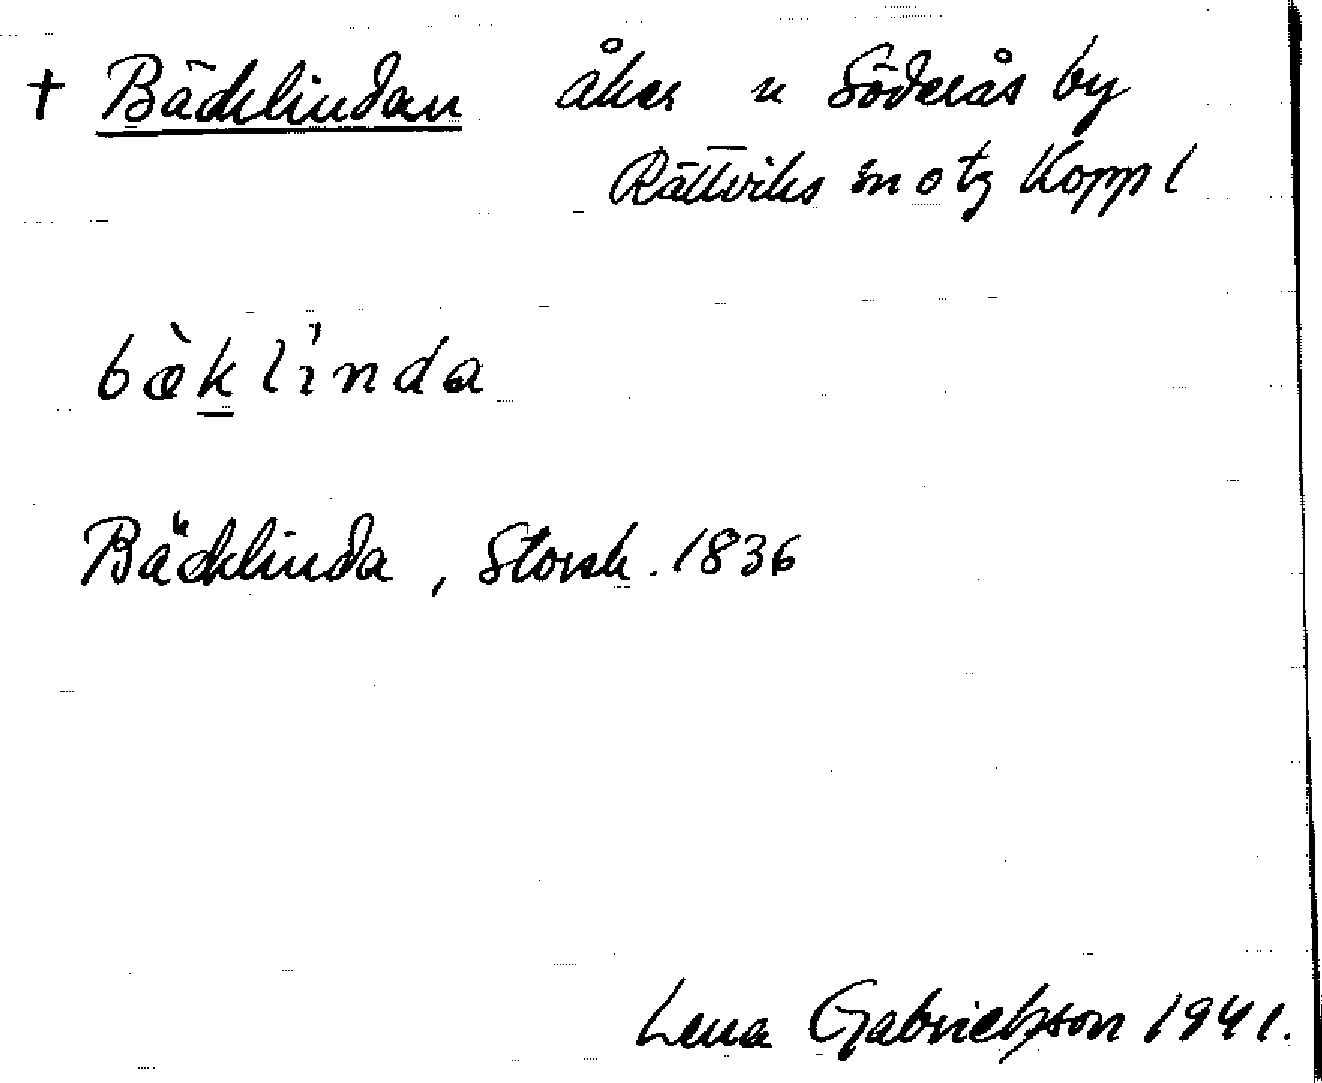 † Bäcklindan åker n Söderås by
Rättviks sn o tg Kopp l
bæ̀klìnda
Bäcklinda, Storsk. 1836
Lena Gabrielsson 1941.